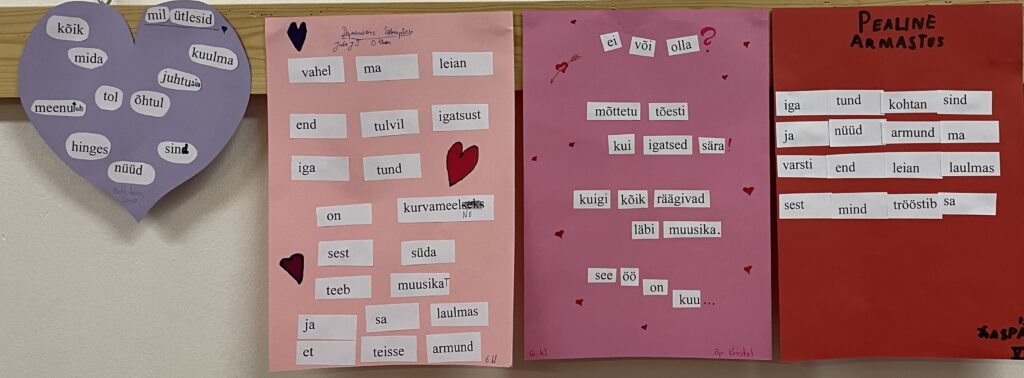 kõik
mil ütlesid
mida
kuulma
juhtu
meenutab
tol
õhtul
hinges
sind
nüüd
vahel ma leian
end tulvil igatsust
iga tund
on kurvameelne
sest süda
teeb muusikaT
ja sa laulmas
et teisse armund
6.W
ei või olla?
mõttetu tõesti
kui igatsed sära!
kuigi kõik räägivad
läbi muusika.
see öö on kuu...
õp. Kristel
PEALINE
ARMASTUS
iga tund kohtan sind
ja nüüd armund ma
varsti end leian laulmas
sest mind trööstib sa